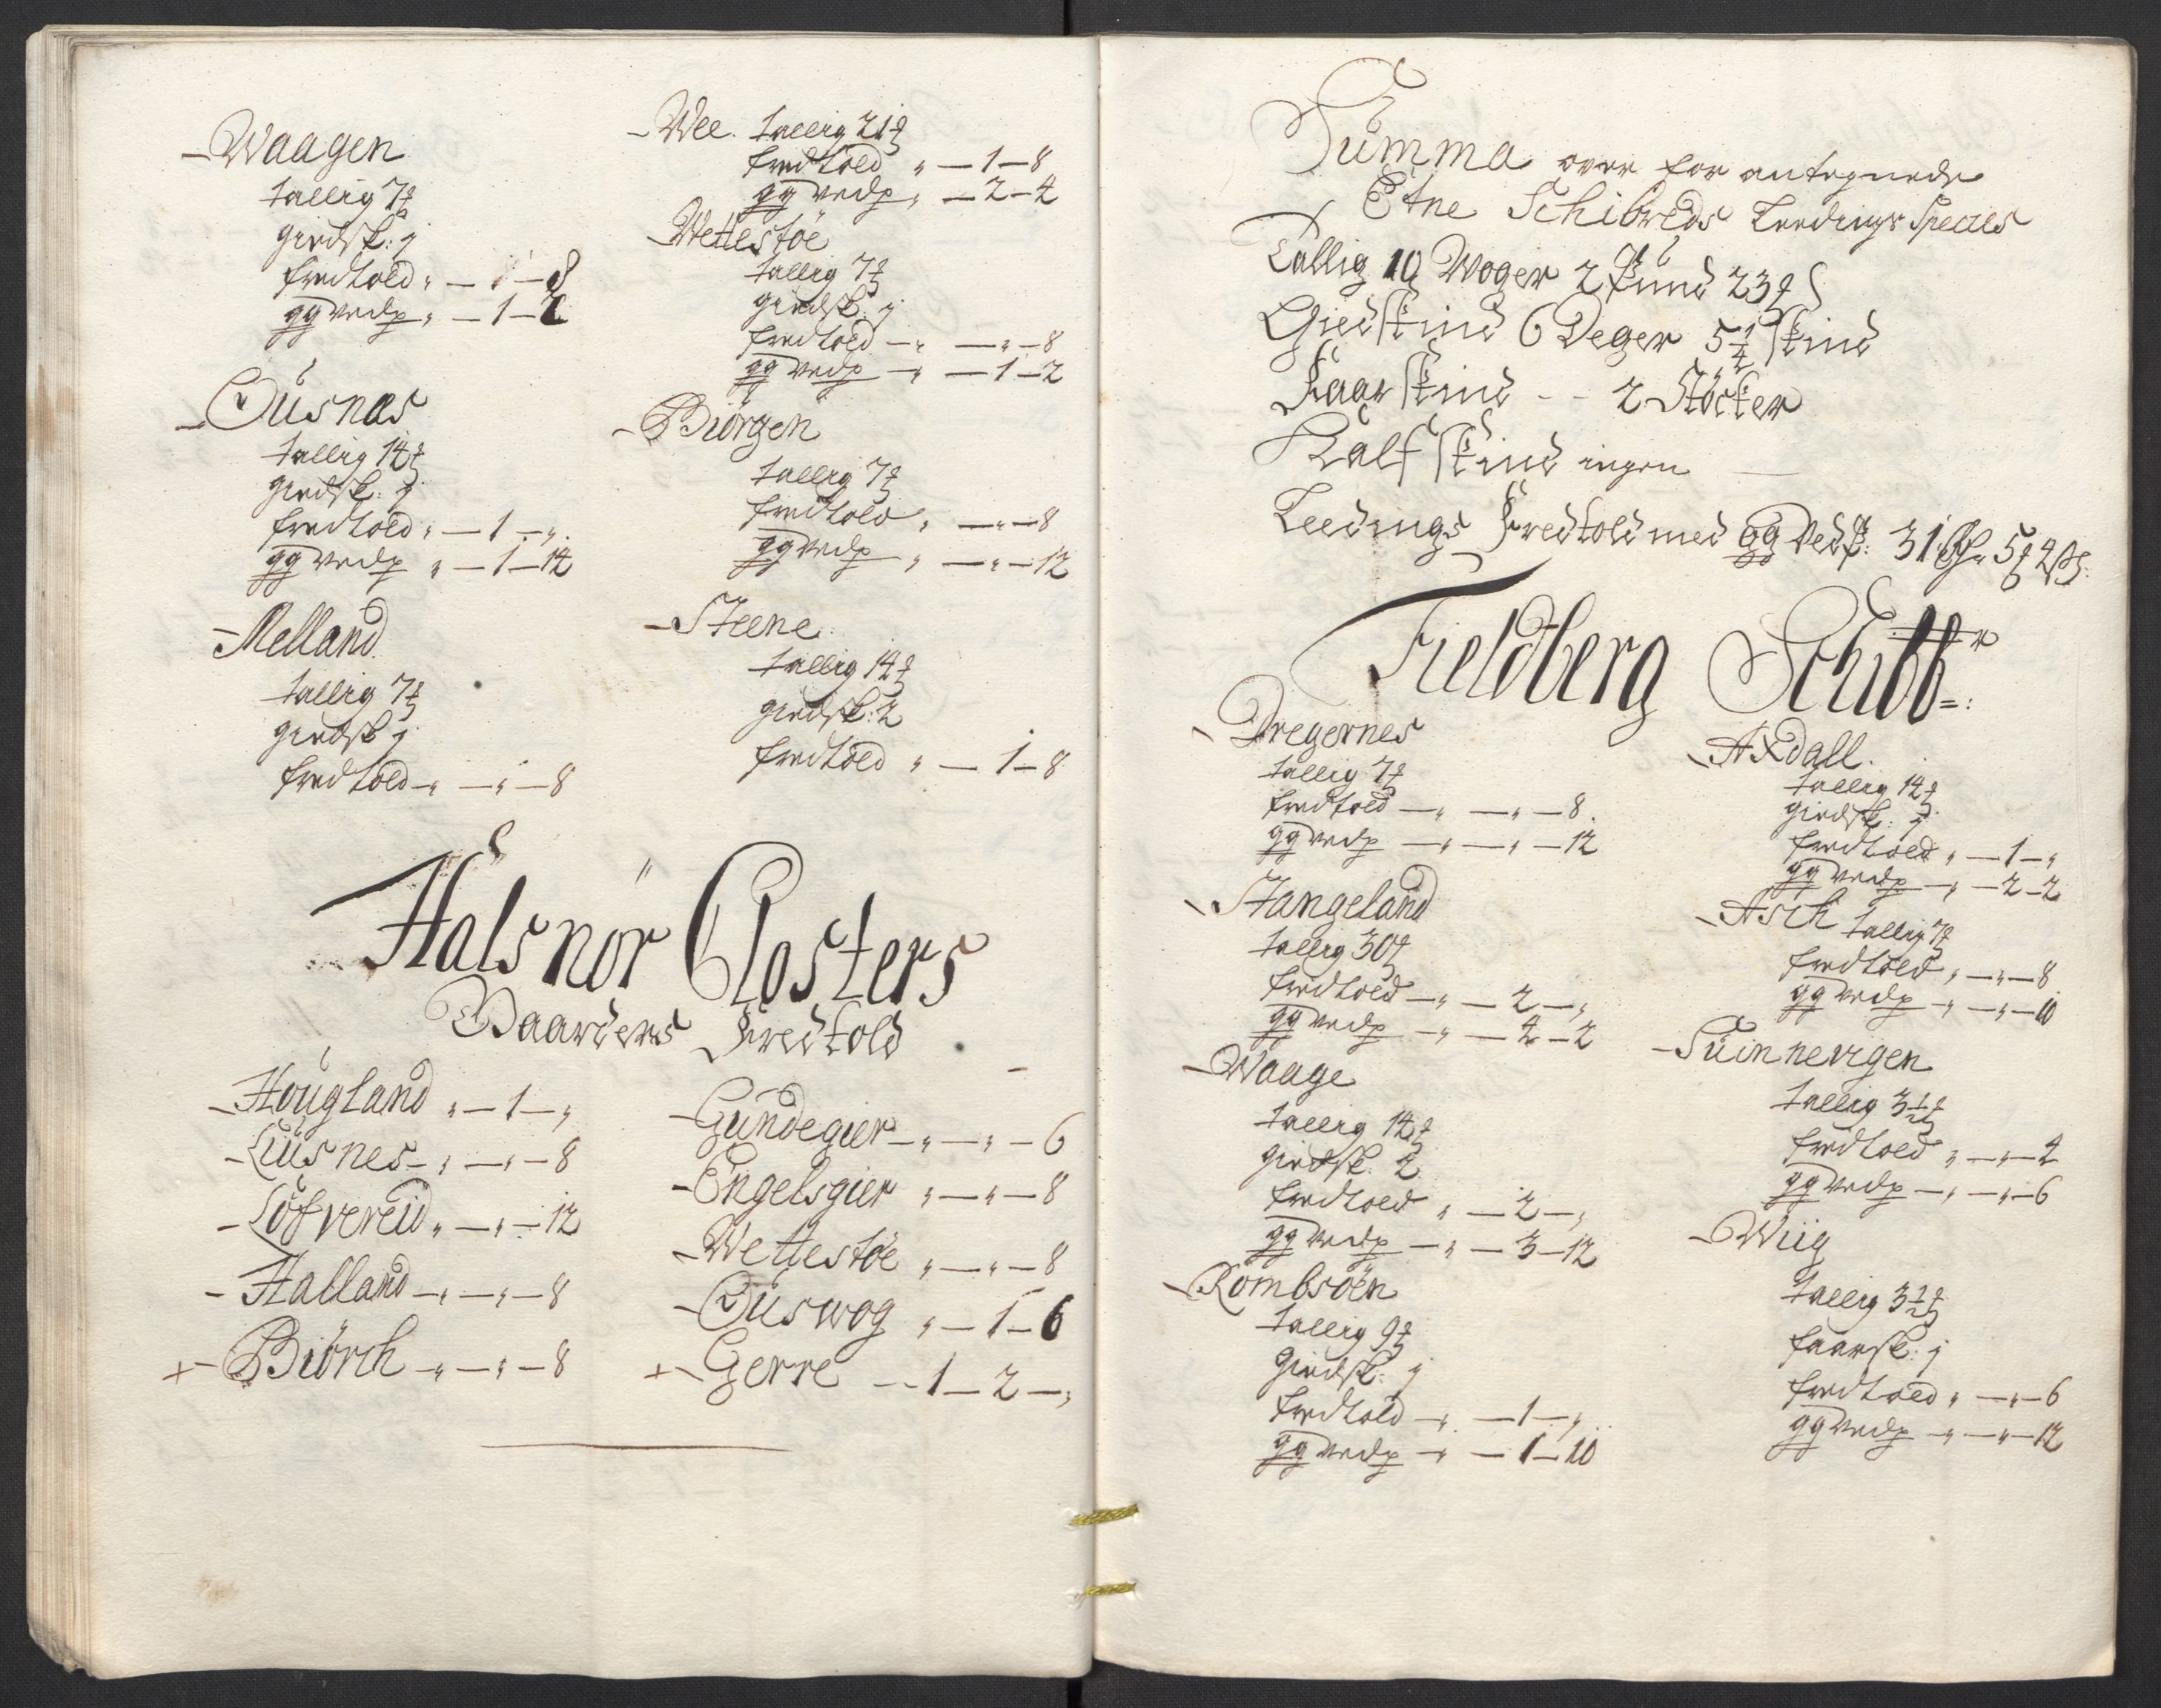 Waagen
tallig 7 ℔
giedsk: j
fredtold „ — 1 — 8
gg vedp „ — 1 — 2
Ousnas
tallig 14 ℔
giedsk: j
fredtold „ — 1 — „
gg vedp „ — 1 — 14
Melland
tallig 7 ℔
giedsk j
fredtold „ — „ — 8
Wee. tallig 21 ℔
fredtold „ — 1 — 8
gg vedp „ — 2 — 4
Wettestöe
tallig 7 ℔
giedsk: j
fredtold — „ — „ — 8
gg vedp — „ — 1 — 2
Biörgen
tallig 7 ℔
fredtold „ — „ — 8
gg vedp „ — „ — 12
Steene
tallig 14 ℔
giedsk: 2
fredtold „ — 1 — 8
Halsnör Closters
Baarders Fredtold
Hougland „ — 1 — „
Liusnes — „ — „ — 8
Löfvereid „ — „ — 12
Halland — „ — „ — 8
+ Biörch — „ — „ — 8
Gundegier — „ — „ — 6
Engelsgier „ — „ — 8
Wettestöe „ — „ — 8
Ouswog „ — 1 — 6
+ Gerre — 1 — 2 — „
Summa over for antegnede
Etne Schibreds Leedings Species
Tallig 10 Woger 2 Pund 23 ℔
Giedskind 6 Deger 5 1/4 skind
Faar skind - - 2 Støcker
Kalf skind ingen
Leedings Fredtold med gg Vedp: 31 Rdr 5 ℔ 4 ß:
Fieldberg Schibbr:
Dregernes
tallig 7 ℔
fredtold — „ — „ — 8
gg vedp — „ — „ — 12
Stangeland
tallig 30 ℔
fredtold — „ — 2 — „
gg vedp — „ — 4 — 2
Waage
tallig 14 ℔
giedsk: 2
fredtold „ — 2 — „
gg vedp — „ — 3 — 12
Römbsöen
tallig 9 ℔
giedsk: j
fredtold — „ — 1 — „
gg vedp — „ — 1 — 10
Axdall
tallig 14 ℔
giedsk: j
fredtold „ — 1 — „
gg vedp — „ — 2 — 2
Asch tallig 7 ℔
fredtold „ — „ — 8
gg vedp — „ — „ — 10
Suinnevigen
tallig 3 1/2 ℔
fredtold „ — „ — 4
gg vedp — „ — „ — 6
Wiig
tallig 3 1/2 ℔
faarsk: j
fredtold „ — „ — 6
gg vedp — „ — „ — 12